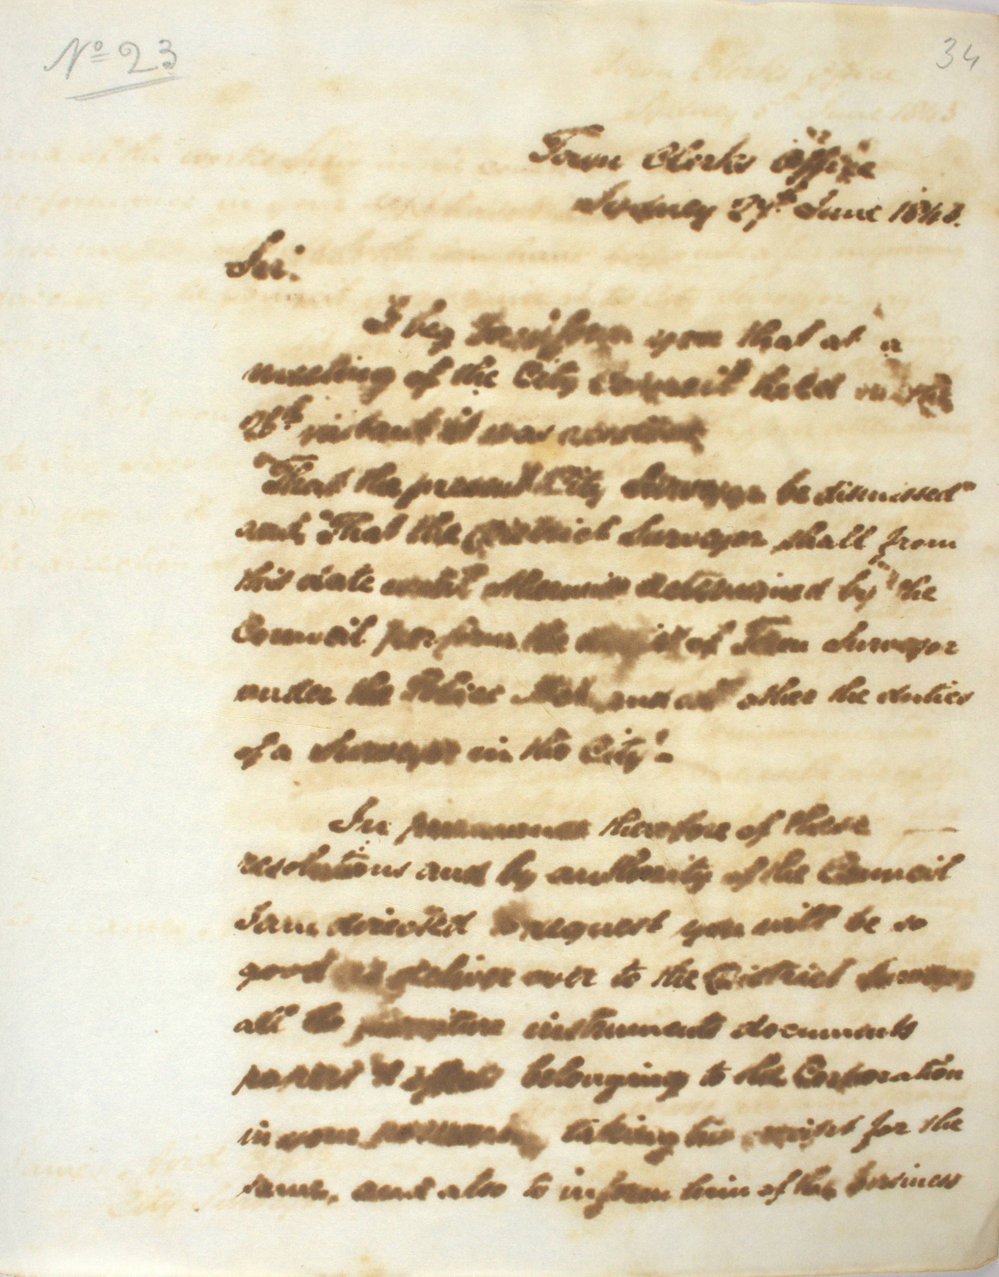 No 23
34
Town Clerks Office
Sydney 27th June 1843.
Sir,
I beg to inform you that at a
meeting of the City Council held on the
26th instant it was resolved
"That the present City Surveyor be dismissed"
and, "That the District Surveyor shall from
this date until otherwise determined by the
Council perform the of Town Surveyor
under the Police Act, and all other the duties
of a Surveyor in the City".
In pursuance therefore of these
resolutions and by authority of the Council
I am directed to request you will be so
good as deliver over to the District Surveyor
all the furniture instruments documents
papers & effects belonging to the Corporation
in your possession, taking his receipt for the
same, and also to inform him of the business